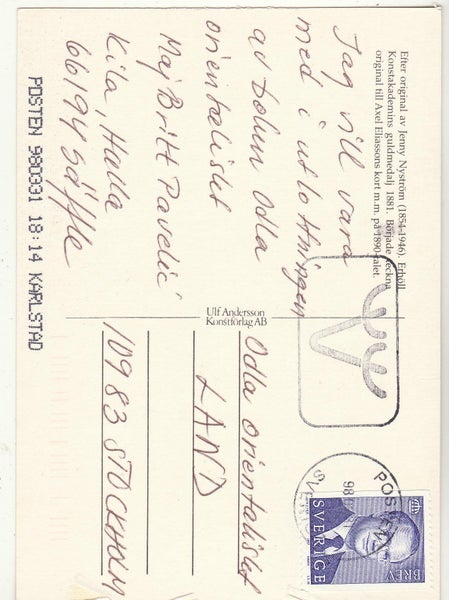 Efter original av Jenny Nyström (1854-1946). Erhöll
Konstakademins guldmedalj 1881. Började teckna
original till Axel Eliassons kort m.m. på 1890-talet.
Jag vill vara
med i utlottningen
av boken Odla
orientaliskt
Maj Britt Pavelic
Kila, Halla
66194 Säffle
POSTEN 980331 18:14 KARLSTAD
Ulf Andersson
Konstförlag AB
Odla orientaliskt
LAND
10983 STOCKHOLM
POSTEN
98
SVERIGE
BREV